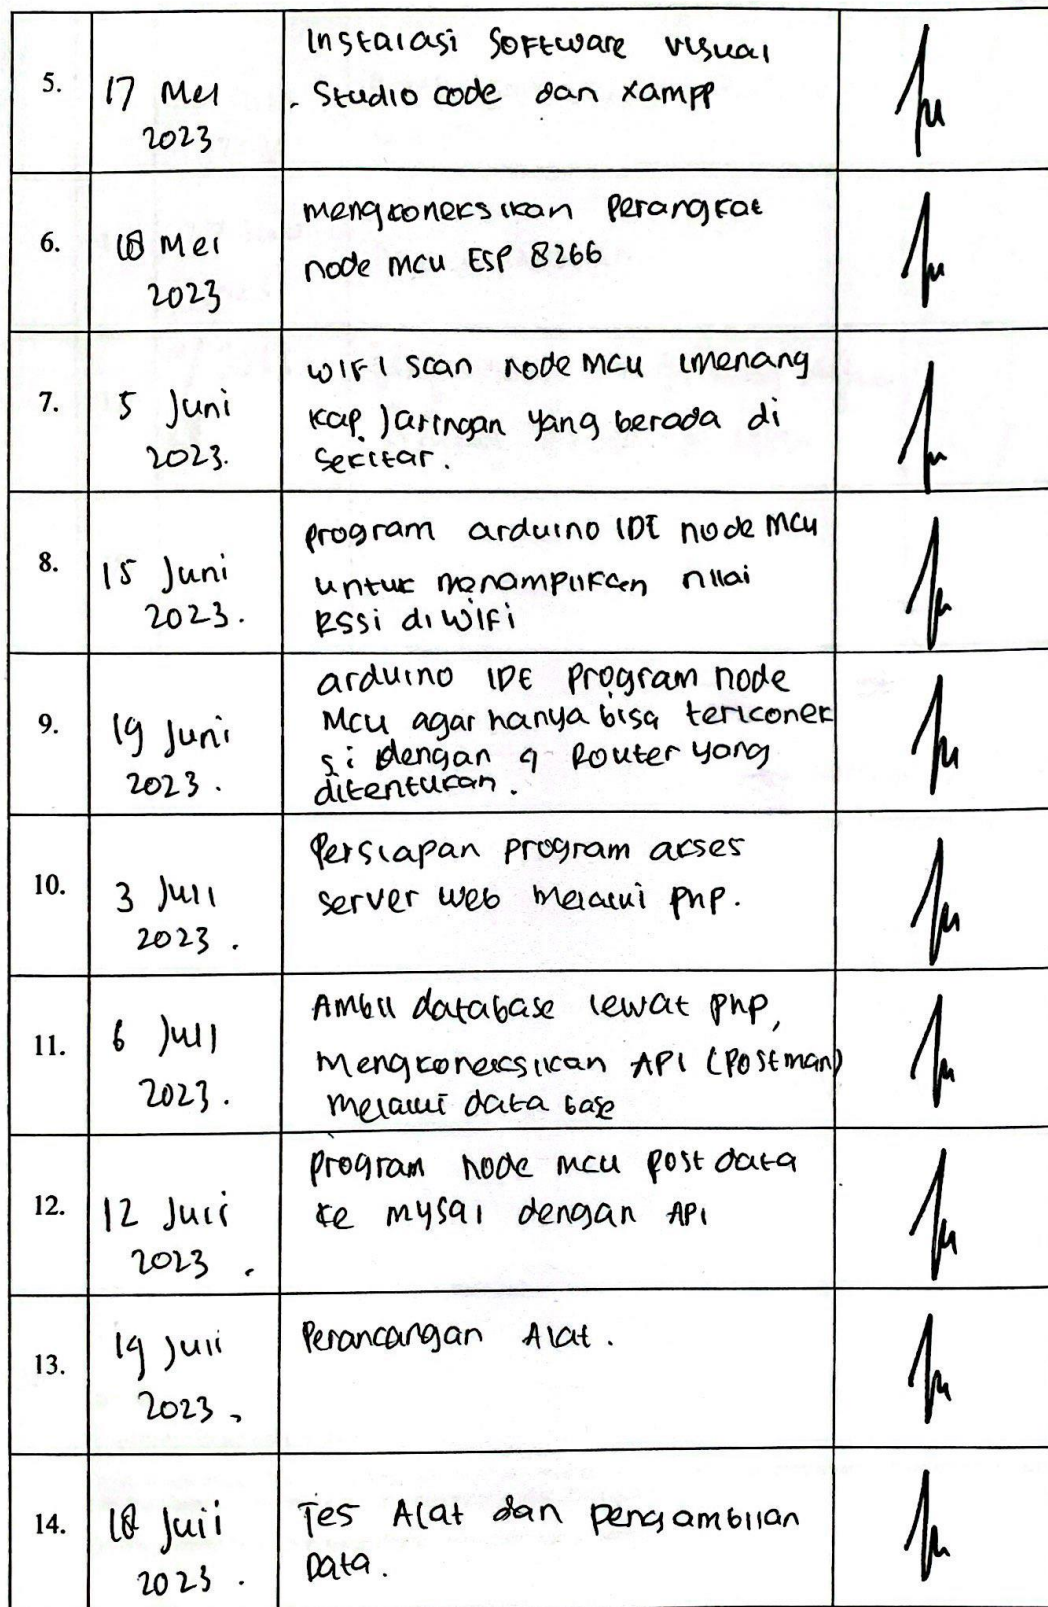 5.
17 Mei
2023
Instalasi Software visual
Studio code dan xampp
6.
18 Mei
2023
mengkoneksikan Perangkat
node mcu ESP 8266
7.
5 Juni
2023.
WIFI scan node Mcu menang
kap Jaringan yang berada di
sekitar.
8.
15 Juni
2023.
program arduino IDE node Mcu
untuk menampilkan nilai
RSSi di WiFi
9.
19 Juni
2023.
arduino IDE Program node
Mcu agar hanya bisa terkonek
si dengan 4 Router yang
ditentukan.
10.
3 Juli
2023.
Persiapan program akses
server web melalui php.
11.
6 Juli
2023.
Ambil database lewat php,
Mengkoneksikan API (Postman)
melalui data base
12.
12 Juli
2023.
program node mcu post data
ke mysql dengan API
13.
19 Juli
2023.
Perancangan Alat.
14.
18 Juli
2023.
Tes Alat dan pengambilan
Data.